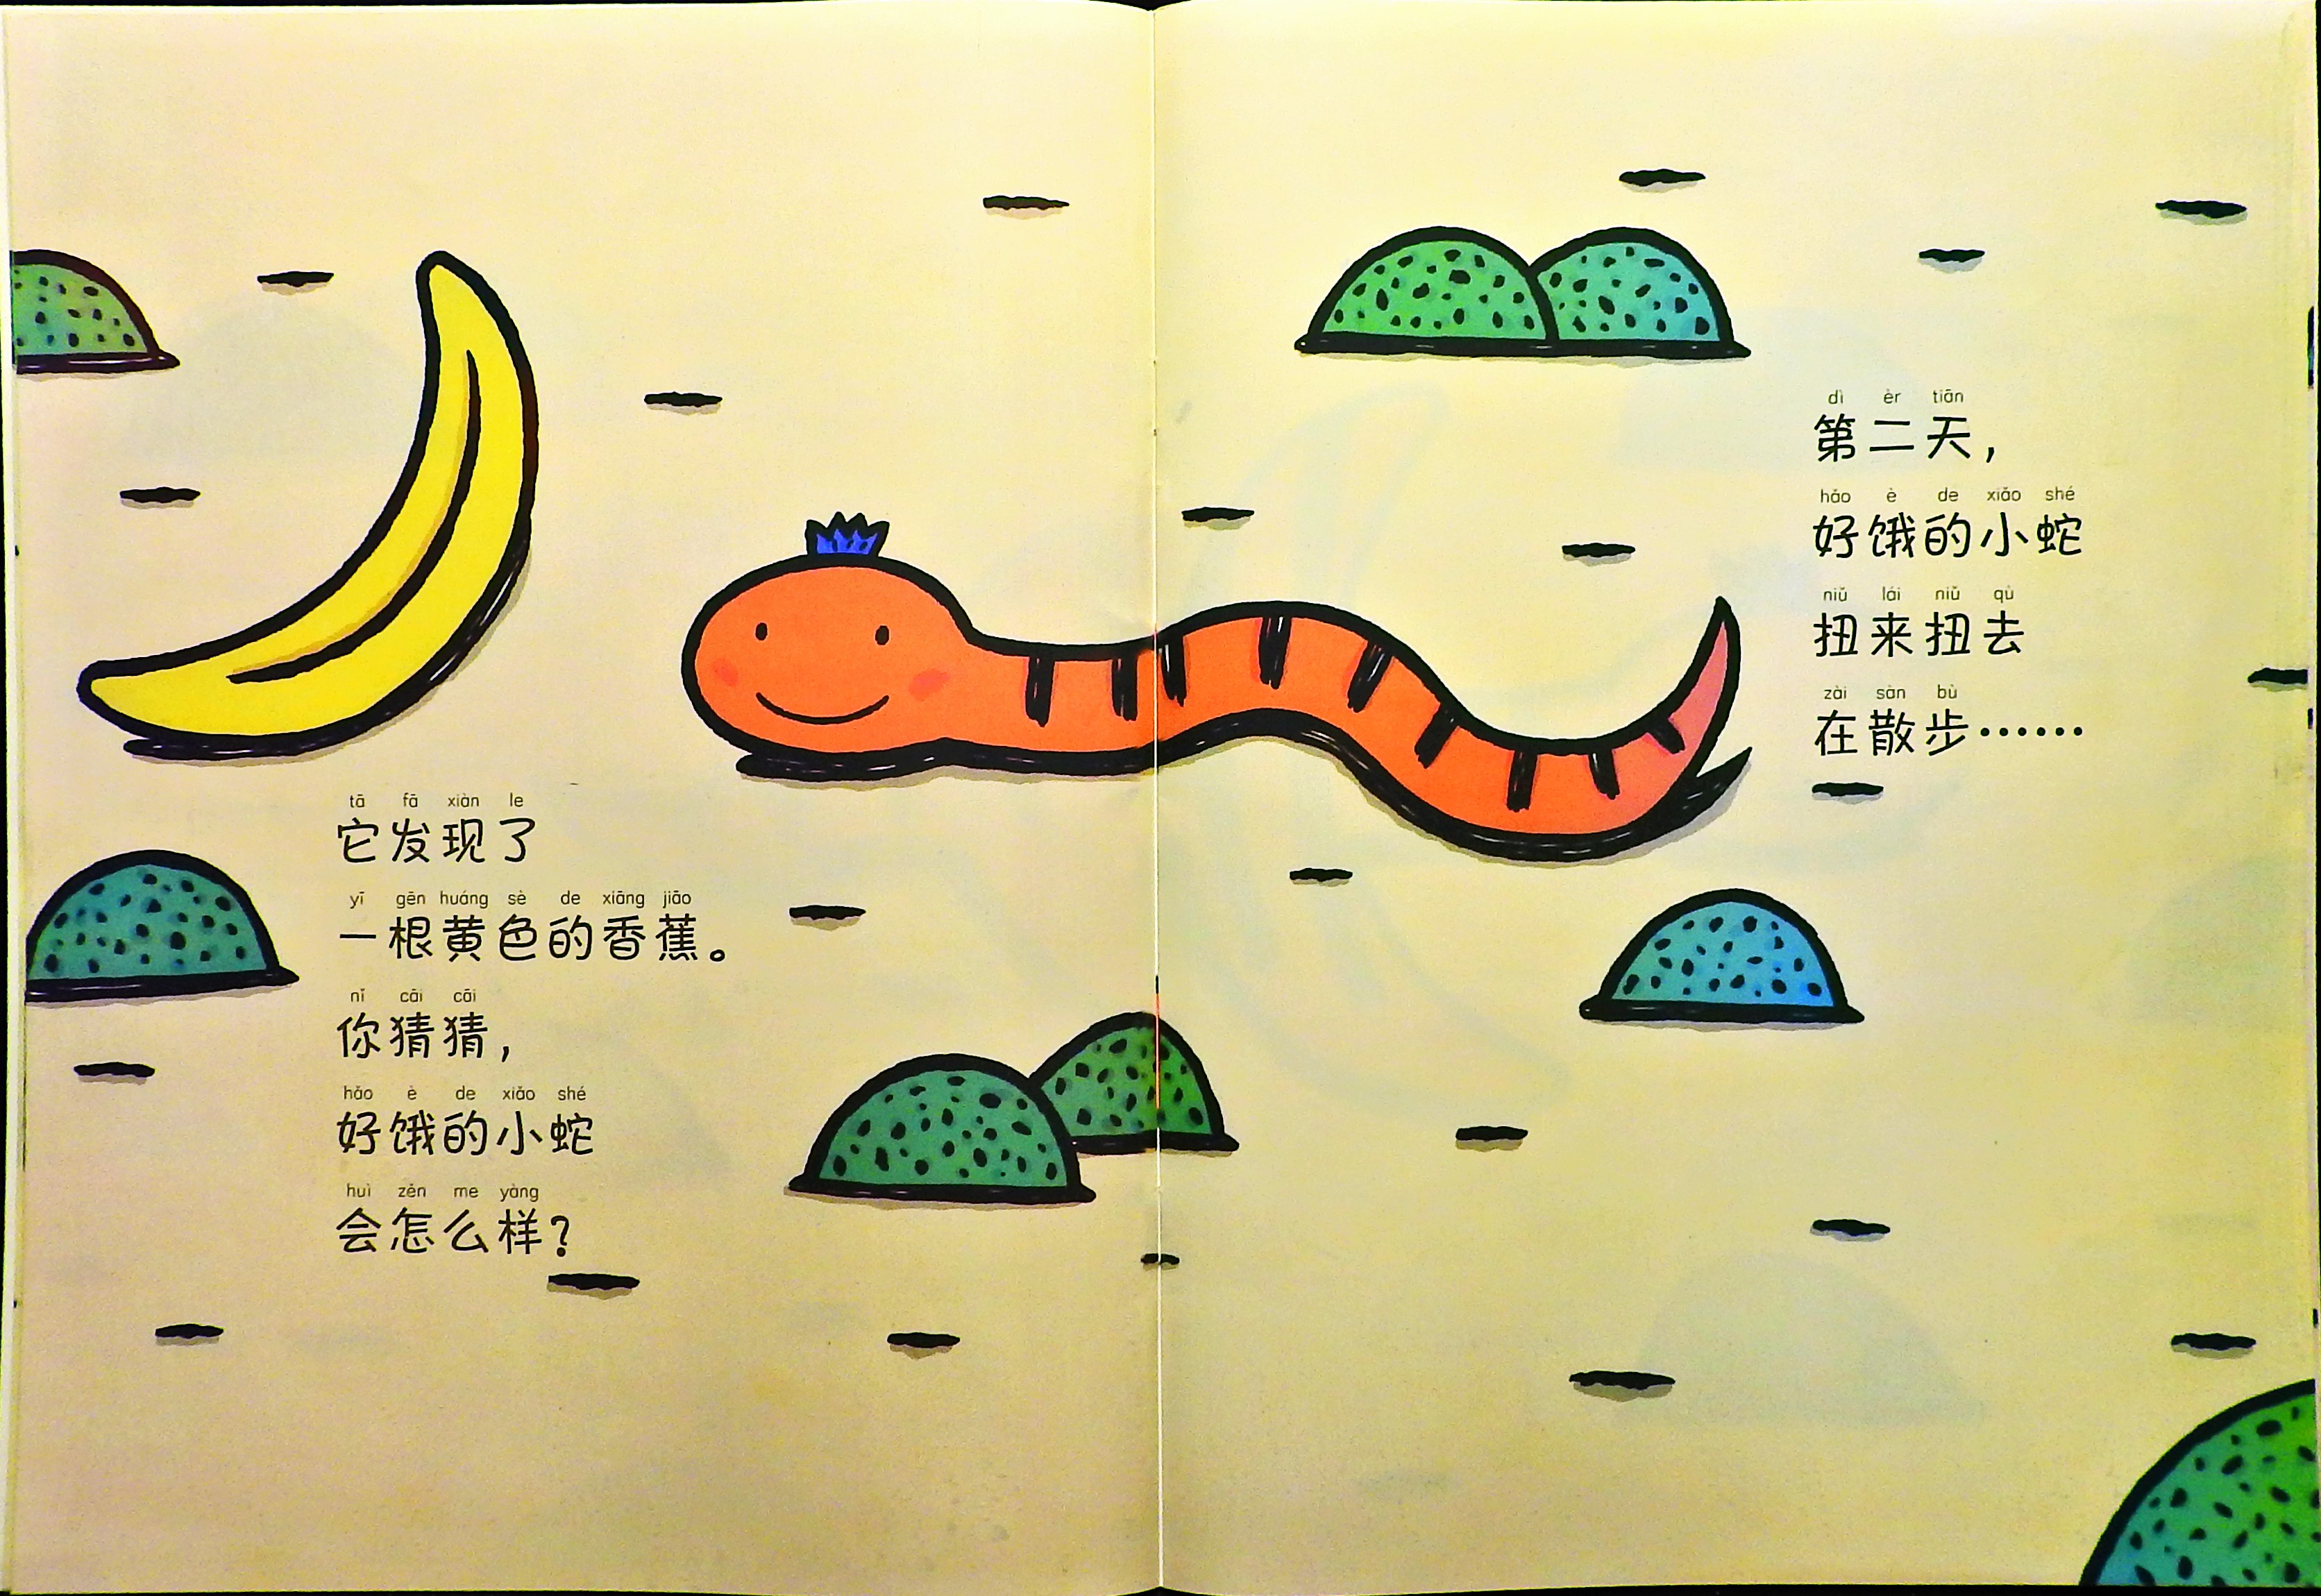 dì èr tiān
第二天，
hǎo è de xiǎo shé
好饿的小蛇
niǔ lái niǔ qù
扭来扭去
zài sàn bù
在散步……
tā fā xiàn le
它发现了
yī gēn huáng sè de xiāng jiāo
一根黄色的香蕉。
nǐ cāi cāi
你猜猜，
hǎo è de xiǎo shé
好饿的小蛇
huì zěn me yàng
会怎么样？